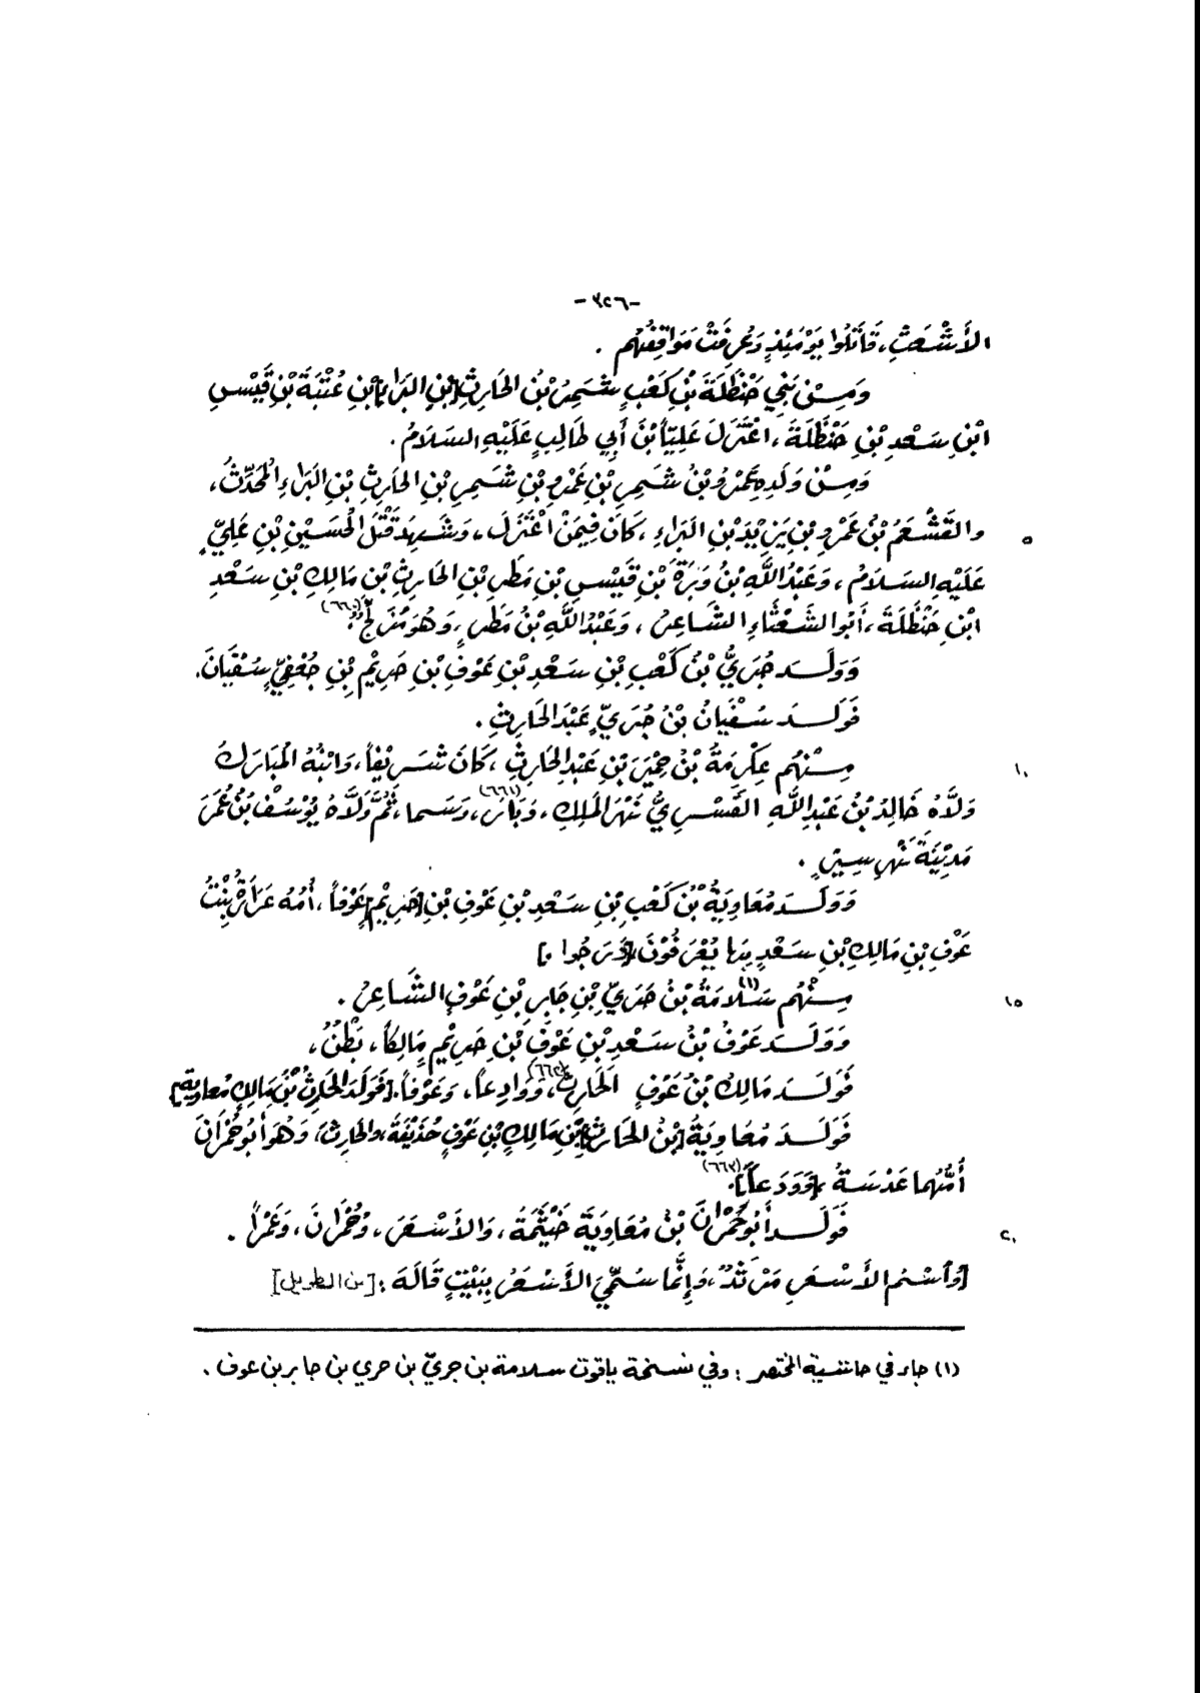 -٣٢٦-
الأَشْعَثِ، قَاتَلُوا يَوْمَئِذٍ وَعُرِفَتْ مَوَاقِفُهُم .
وَمِنْ بَنِي حَنْظَلَةَ بْنِ كَعْبٍ شَمِرُ بْنُ الحَارِثِ [بْنِ البَرَاءِ] بْنِ عُتْبَةَ بْنِ قَيْسِ
ابْنِ سَعْدِ بْنِ حَنْظَلَةَ، اعْتَزَلَ عَلِيَّاً بْنَ أَبِي طَالِبٍ عَلَيْهِ السَلَامُ .
وَمِنْ وَلَدِهِ عَمْرُو بْنُ شَمِرِ بْنِ عَمْرِو بْنِ شَمِرِ بْنِ الحَارِثِ بْنِ البَرَاءِ المُحَدِّثُ،
٥
والقَشْعَمُ بْنُ عَمْرِو بْنِ يَزِيْدَ بْنِ البَرَاءِ، كَانَ فِيمَنْ اعْتَزَلَ، وَشَهِدَ قَتْلَ الحُسَيْنِ بْنِ عَلِيٍّ
عَلَيْهِ السَلَامُ، وَعَبْدُ اللَّهِ بْنُ وَبَرَةَ بْنِ قَيْسِ بْنِ مَطَرِ بْنِ الحَارِثِ بْنِ مَالِكِ بْنِ سَعْدِ
ابْنِ حَنْظَلَةَ، أَبُو الشَعْثَاءِ الشَاعِرُ، وَعَبْدُ اللَّهِ بْنُ مَطَرٍ، وَهُوَ مُزَلِّجٌ (٦٦٠).
وَوَلَدَ جُرَيُّ بْنُ كَعْبِ بْنِ سَعْدِ بْنِ عَوْفِ بْنِ حَرِيْمِ بْنِ جُعْفِيٍّ سُفْيَانَ.
فَوَلَدَ سُفْيَانُ بْنُ جُرَيٍّ عَبْدَ الحَارِثِ .
١٠
مِنْهُم عِكْرِمَةُ بْنُ حِمْيَرَ بْنِ عَبْدِ الحَارِثِ، كَانَ شَرِيْفَاً، وَابْنُهُ المُبَارَكُ
وَلَّاهُ خَالِدُ بْنُ عَبْدِ اللَّهِ القَسْرِيُّ نَهْرَ المَلِكِ، (٦٦١) وَسَما، ثُمَّ وَلَّاهُ يُوْسُفُ بْنُ عُمَرَ
مَدِيْنَةَ نَهْرِ سِيْرٍ .
وَوَلَدَ مُعَاوِيَةُ بْنُ كَعْبِ بْنِ سَعْدِ بْنِ عَوْفِ بْنِ [حَرِيْمٍ] عَوْفَاً، أُمُّهُ عَرَارَةُ بِنْتُ
عَوْفِ بْنِ مَالِكِ بْنِ سَعْدٍ بِهَا يُعْرَفُوْنَ [دَرَجُوا .]
١٥
مِنْهُم سَلَامَةُ (١) بْنُ حَرَيِّ بْنِ جَابِرِ بْنِ عَوْفٍ الشَاعِرُ .
وَوَلَدَ عَوْفُ بْنُ سَعْدِ بْنِ عَوْفِ بْنِ حَرِيْمٍ مَالِكَاً، بَطْنٌ،
فَوَلَدَ مَالِكُ بْنُ عَوْفٍ الحَارِثَ (٦٦٢)، وَوَادِعَاً، وَعَوْفَاً. [فَوَلَدَ الحَارِثُ بْنُ مَالِكٍ مُعاوِيَةَ]
فَوَلَدَ مُعَاوِيَةُ [بْنُ الحَارِثِ] بْنِ مَالِكِ بْنِ عَوْفٍ حُذَيْفَةَ، والحَارِثَ، وَهُوَ أَبُو حُمْرَانَ
أُمُّهُما عَدَسَةُ، [وَوَدَعَاً]. (٦٦٣)
٢٠
فَوَلَدَ أَبُو حُمْرَانَ بْنُ مُعَاوِيَةَ خَيْثَمَةَ، وَالأَسْعَرَ، وَحُمْرَانَ، وَعَمْرَاً .
[وَاسْمُ الأَسْعَرِ مَرْثَدٌ، وَإِنَّمَا سُمِّيَ الأَسْعَرُ بِبَيْتٍ قَالَهُ : [من الطويل]
(١) جاء في حاشية المختصر : وفي نسخة ياقوت سلامة بن جريّ بن حري بن جابر بن عوف .